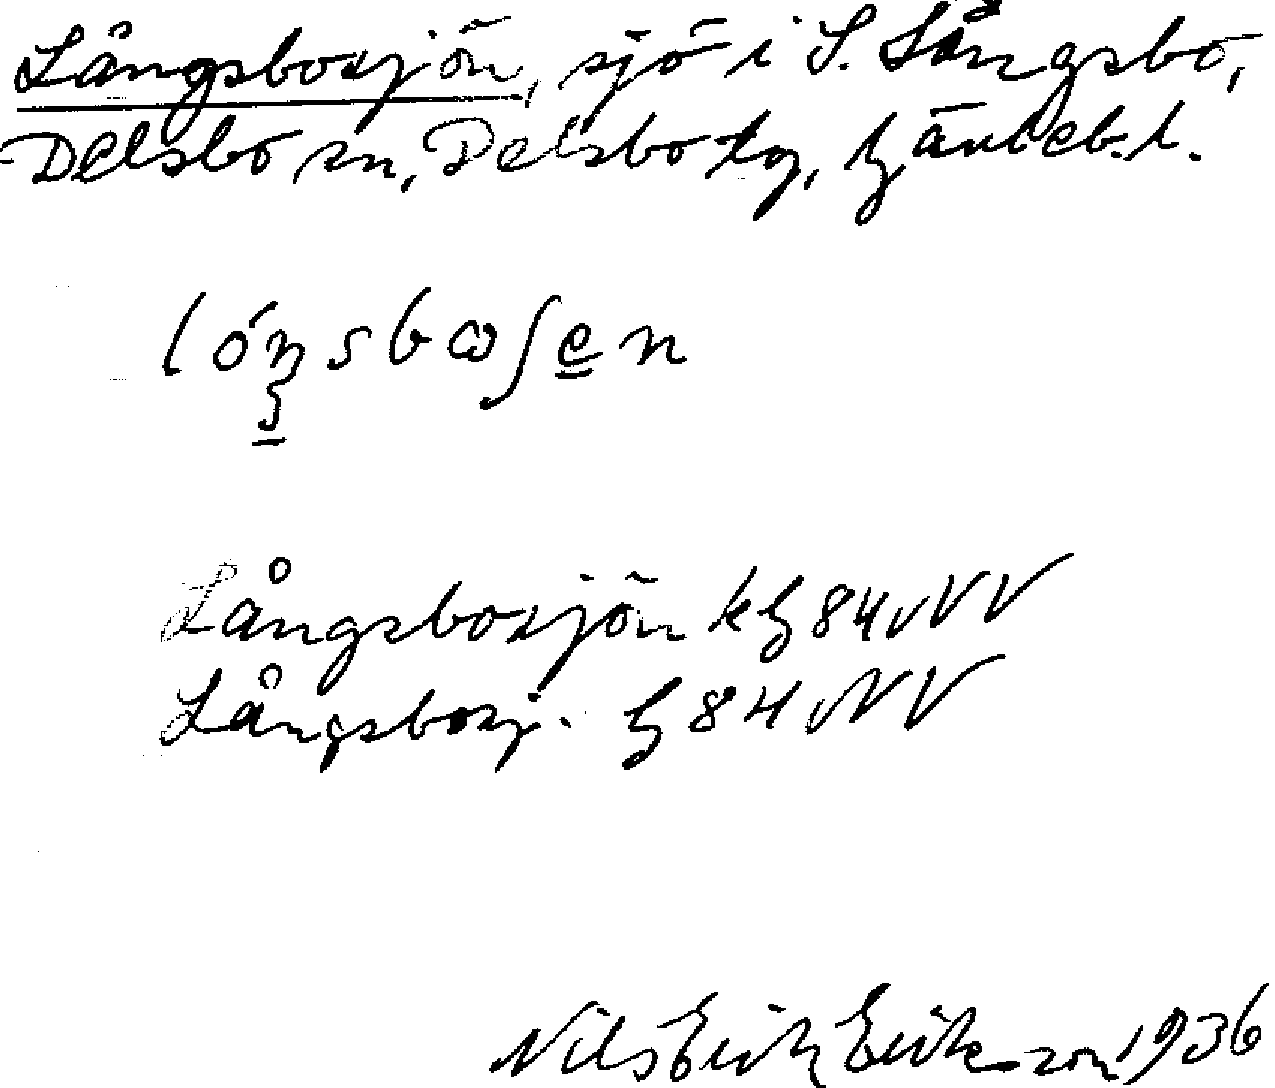 Långsbosjön, sjö i S. Långsbo,
Delsbo sn, Delsbo tg, Gävleb. l.
Långsbosjön kG 84 NV
Långsbosj. G 84 NV
Nils Erik Eriksson 1936